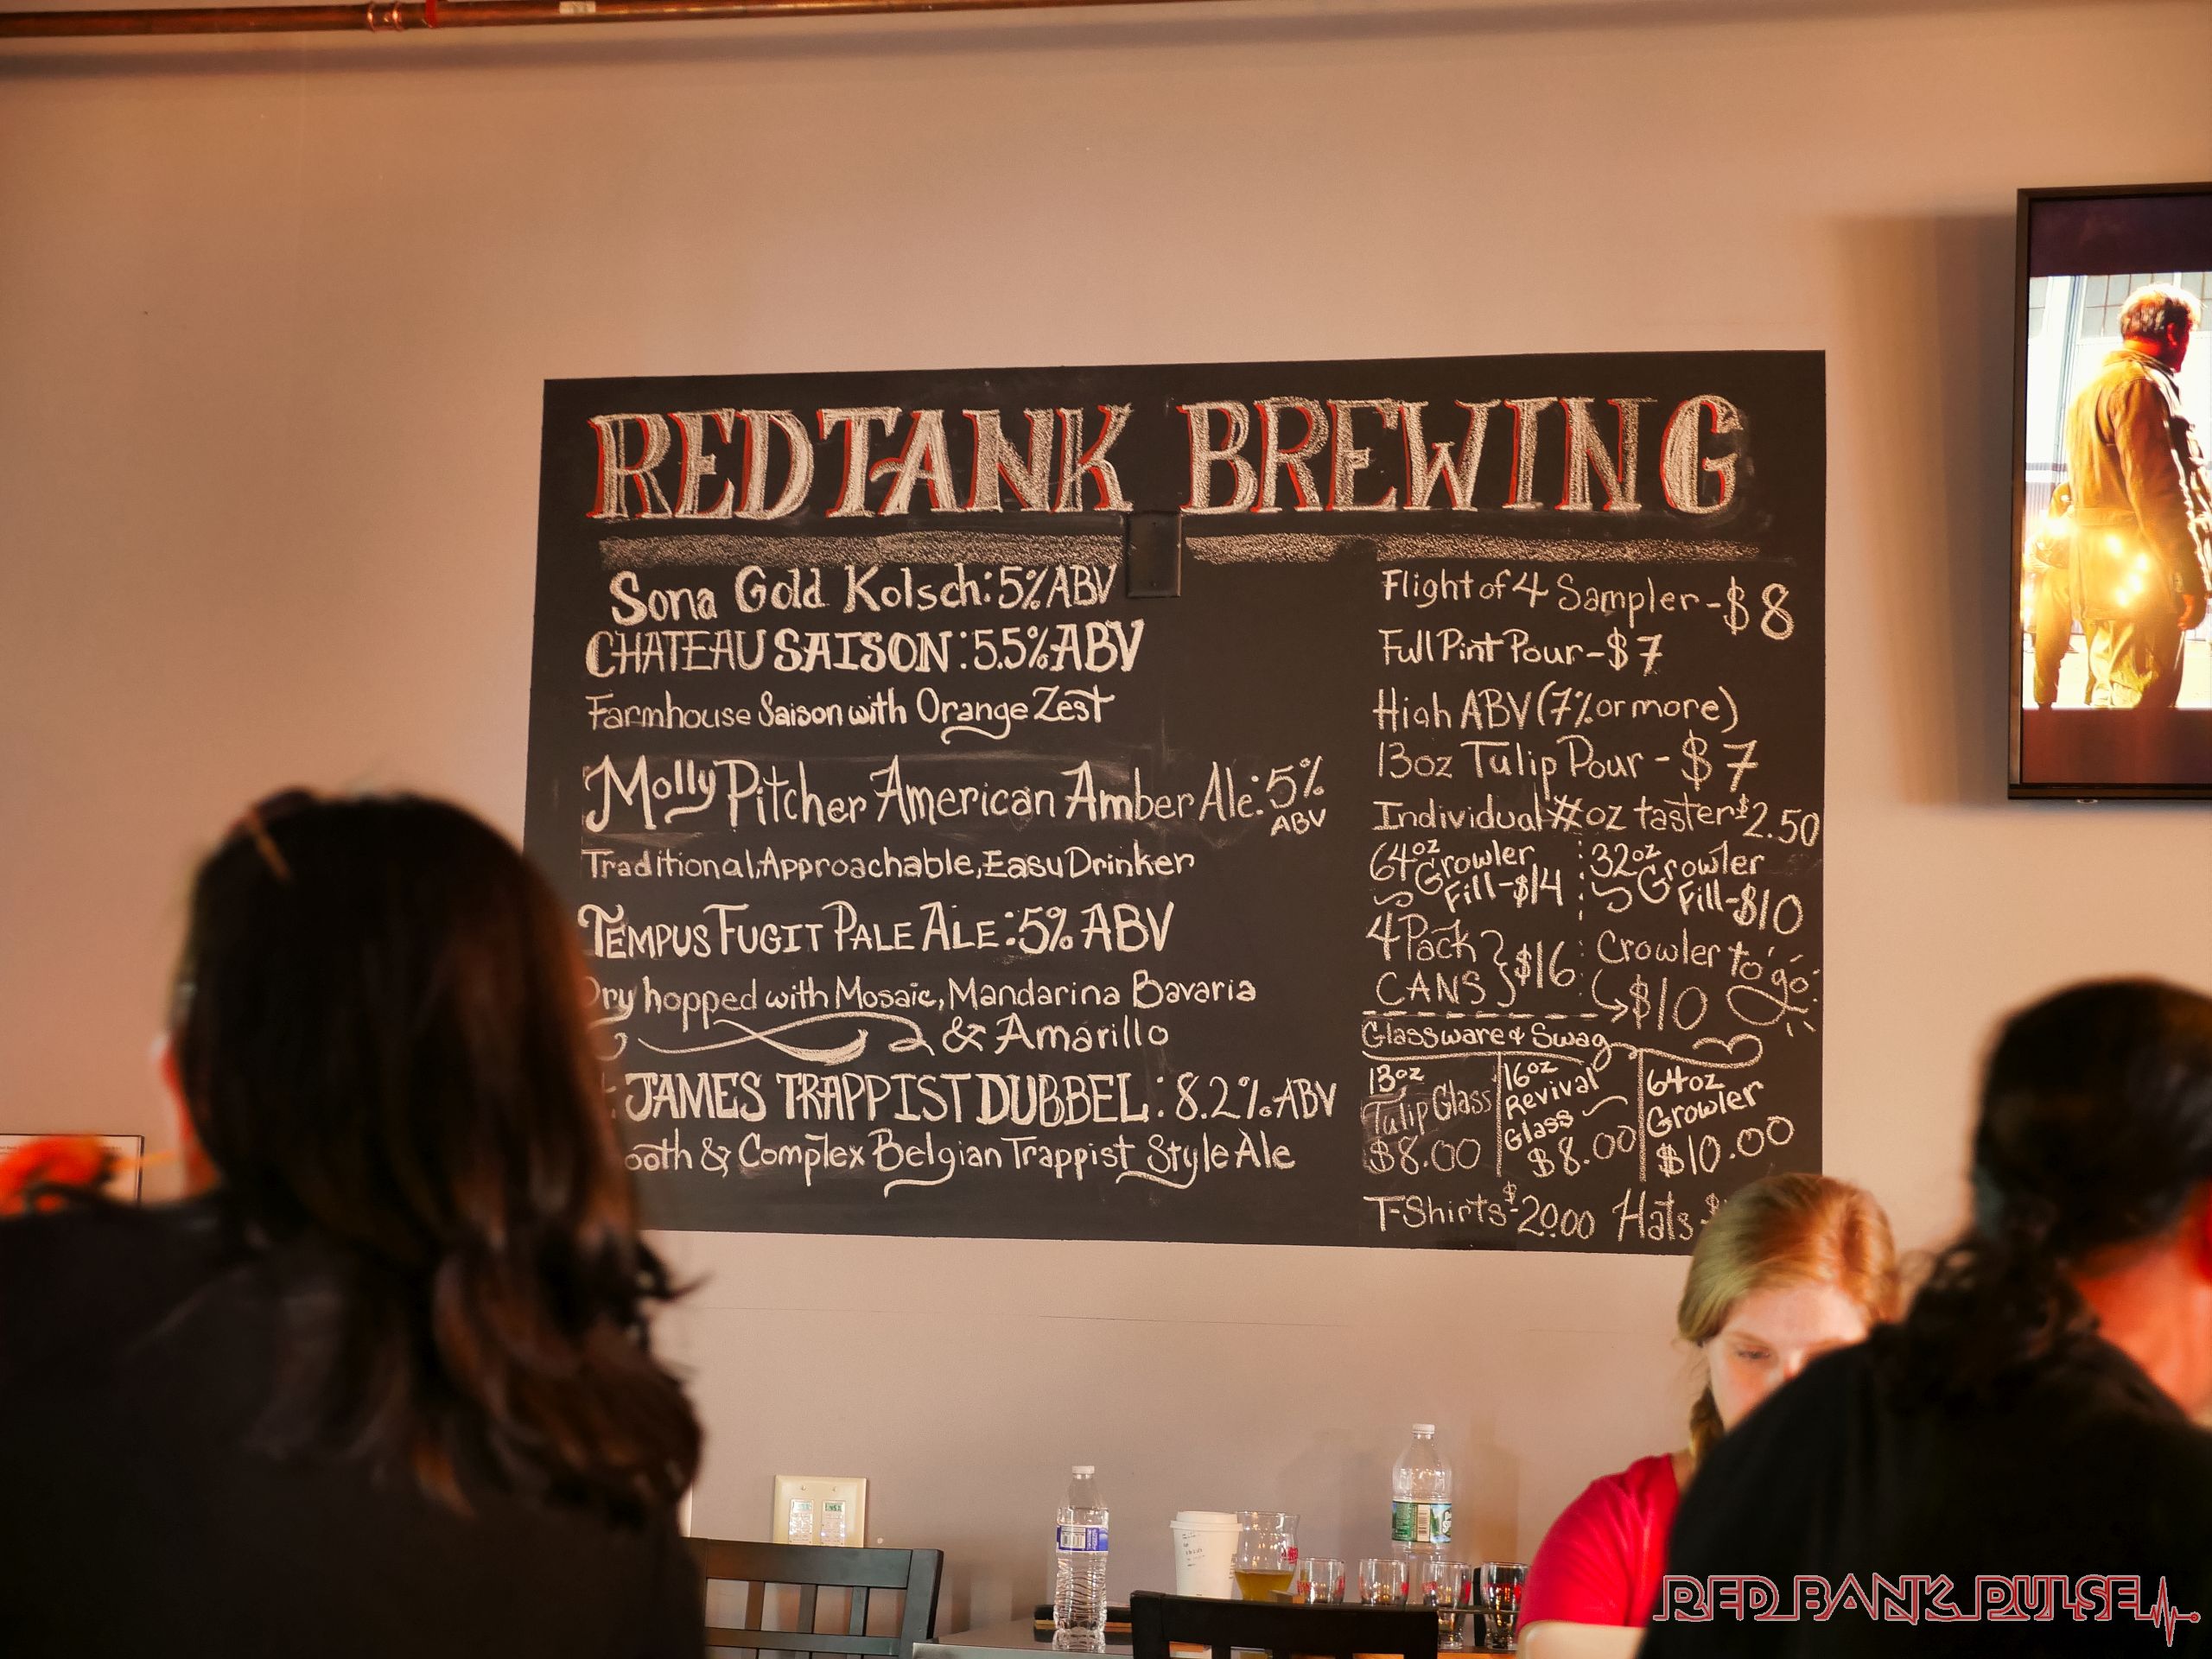 REDTANK BREWING
Sona Gold Kolsch: 5% ABV
CHATEAU SAISON: 5.5% ABV
Farmhouse Saison with Orange Zest
Molly Pitcher American Amber Ale: 5%
ABV
Traditional, Approachable, Easy Drinker
TEMPUS FUGIT PALE ALE: 5% ABV
Dry hopped with Mosaic, Mandarina Bavaria
& Amarillo
JAMES TRAPPIST DUBBEL: 8.2% ABV
ooth & Complex Belgian Trappist Style Ale
Flight of 4 Sampler - $8
Full Pint Pour - $7
High ABV (7% or more)
13oz Tulip Pour - $7
Individual 4oz taster $2.50
64oz Growler
Fill - $14
32oz Growler
Fill - $10
4 Pack
CANS } $16
Crowler to go
$10
Glassware & Swag
13oz
Tulip Glass
$8.00
16oz
Revival
Glass
$8.00
64oz
Growler
$10.00
T-Shirts - $20.00 Hats $
RED BANK PULSE